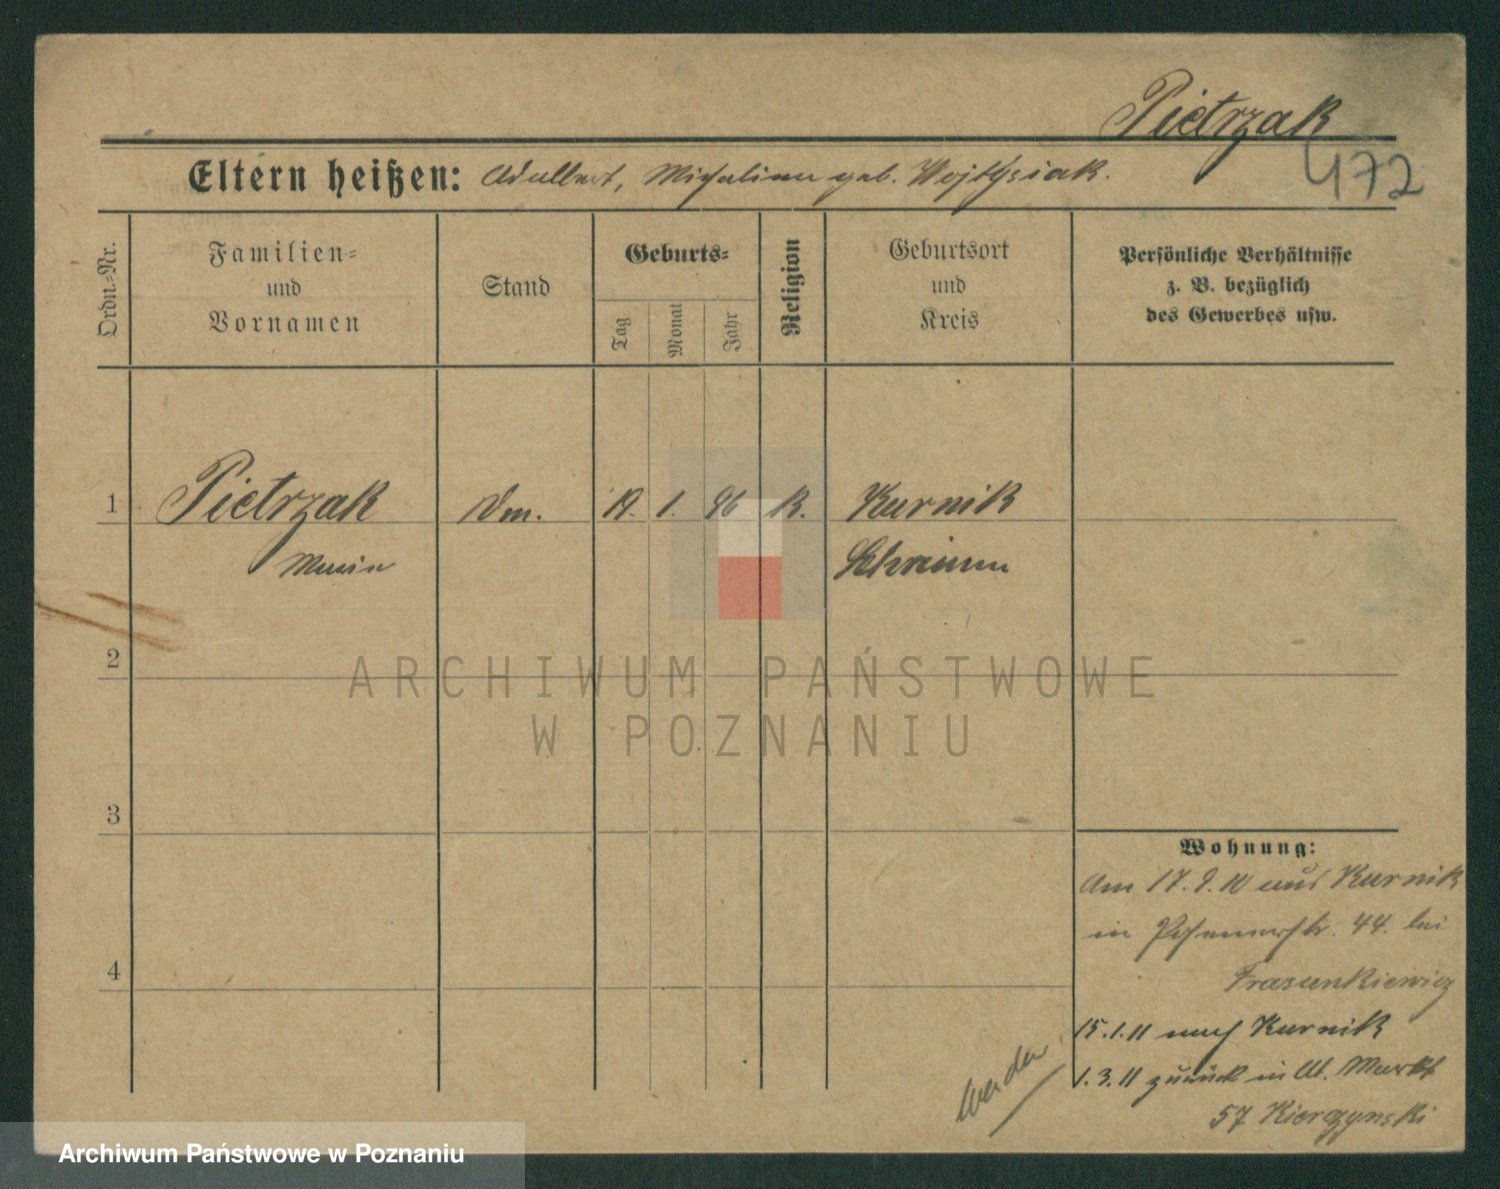 Pietrzak
472
Eltern heißen: Adalbert, Michalina geb. Wojtysiak.
Ordn.-Nr.
Familien-
und
Vornamen
Stand
Geburts-
Tag
Monat
Jahr
Religion
Geburtsort
und
Kreis
Persönliche Verhältnisse
z. B. bezüglich
des Gewerbes usw.
1 Pietrzak Dm. 1. 96 K. Kurnik
Maria Schrimm
2
3
4
Wohnung:
Am 17. 9. 10 aus Kurnik
in Posenerstr. 44. bei
Frasunkiewicz
15.1.11 nach Kurnik
1.3.11 zurück in Alt. Markt
57 Kierczynski
wenden
ARCHIWUM PAŃSTWOWE
W POZNANIU
Archiwum Państwowe w Poznaniu